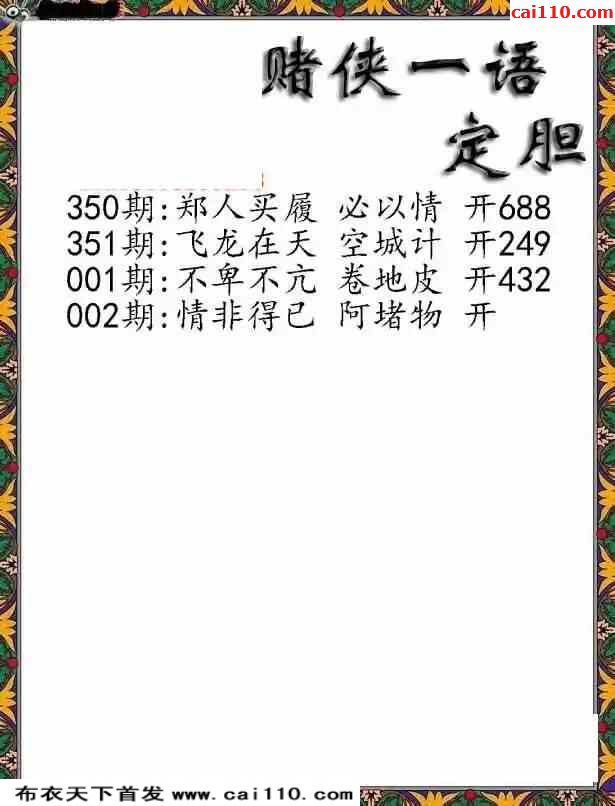 cai110.com
赌侠一语
定胆
350期:郑人买履 必以情 开688
351期:飞龙在天 空城计 开249
001期:不卑不亢 卷地皮 开432
002期:情非得已 阿堵物 开
布衣天下首发 www.cai110.com